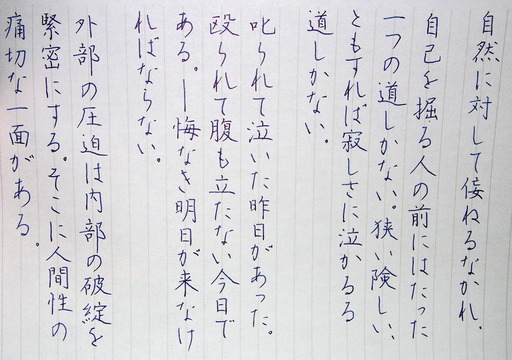 自然に対して侫ねるなかれ.
自己を掘る人の前にはたった
一つの道しかない。狭い険しい、
ともすれば寂しさに泣かるる
道しかない。
叱られて泣いた昨日があった。
殴られて腹も立たない今日で
ある。―悔なき明日が来なけ
ればならない。
外部の圧迫は内部の破綻を
緊密にする。そこに人間性の
痛切な一面がある。